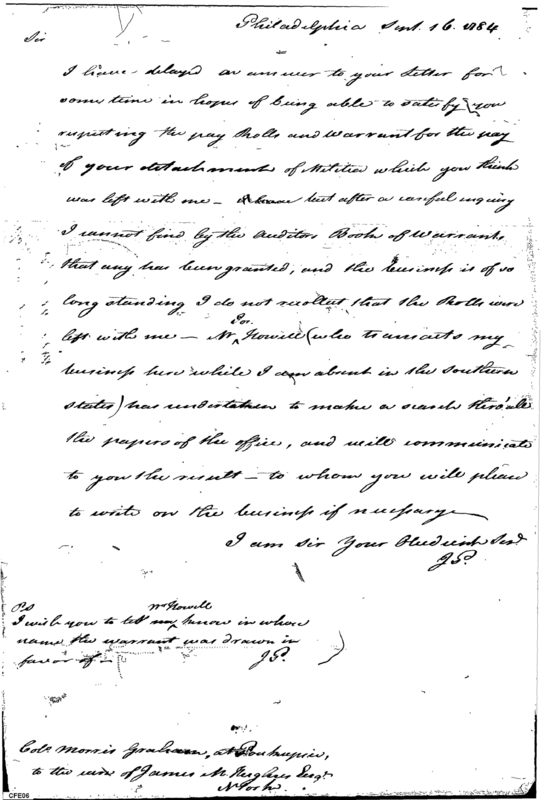 Philadelphia Sept. 16. 1784
Sir
I have delayed an answer to your Letter for
some time in hopes of being able to satisfy you
respecting the pay Rolls and Warrant for the pay
of your detachment of Militia which you think
was left with me — but after a careful inquiry
I cannot find by the Auditors Book of Warrants
that any has been granted, and the business is of so
long standing I do not recollect that the Rolls were
left with me — Mr Jos. Howell (who transacts my
business here while I am absent in the Southern
states) has undertaken to make a search thro' all
the papers of the office, and will communicate
to you the result — to whom you will please
to write on the business if necessary
I am Sir Your Obedient Servt
J P.
PS
I wish you to let Mr Howell know in whose
name the warrant was drawn in
favor of —
J P.
Colo Morris Graham, at Poukepsie,
to the care of James M Hughes Esqr
N York
CFE06